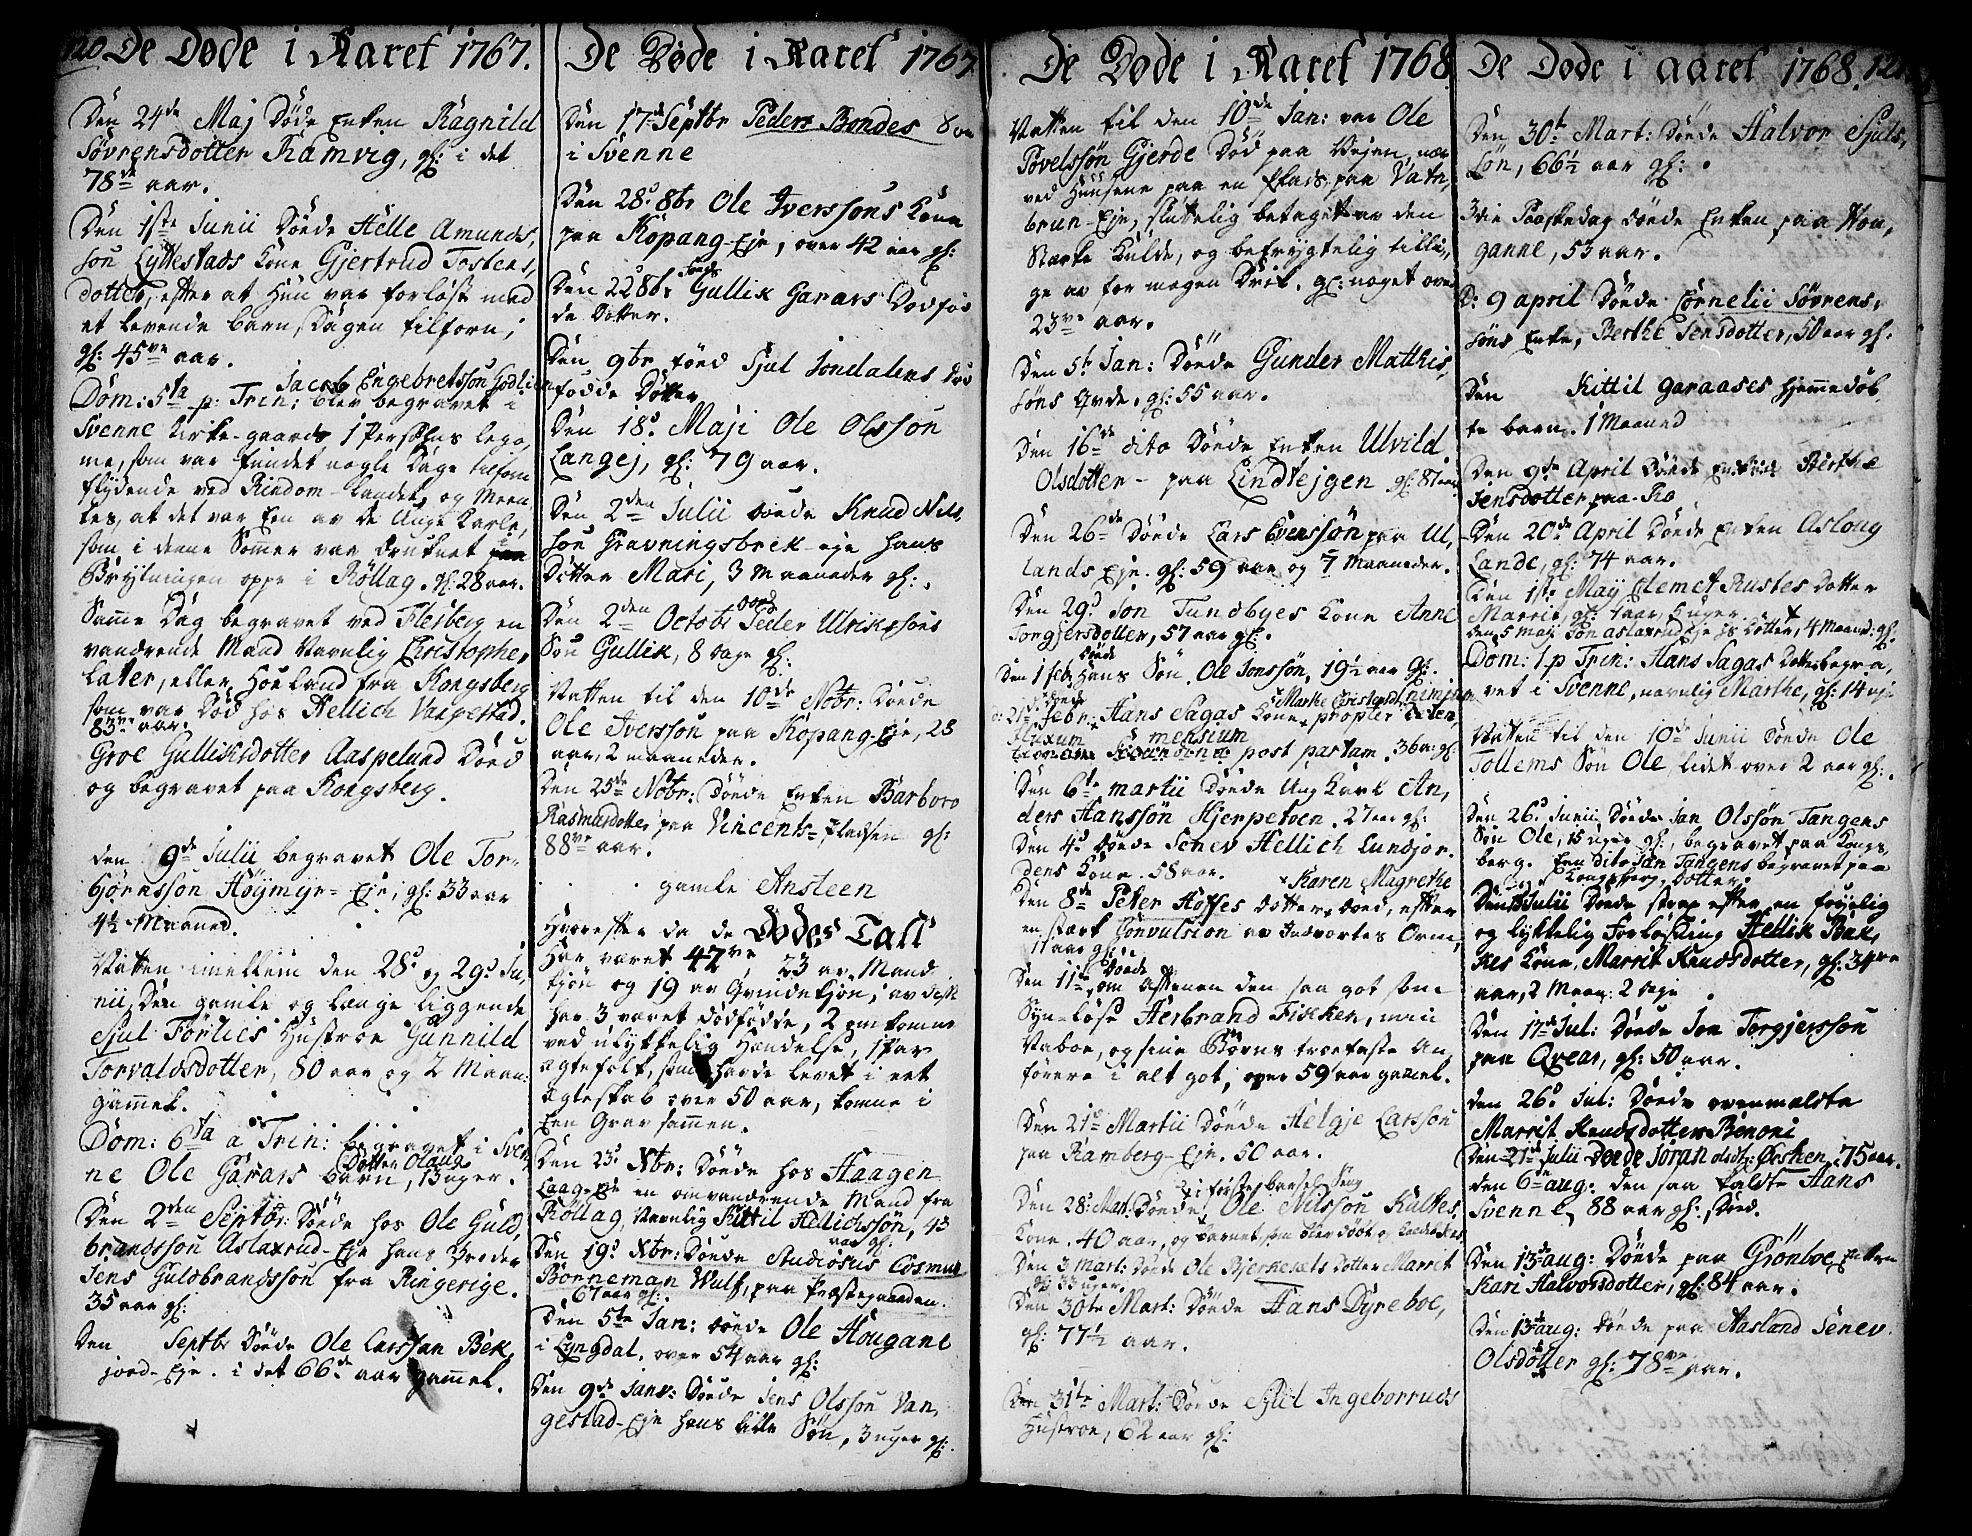 120 De Døde i Aaret 1767.
Den 24de Maj Døde Enken Ragnild
Søvrensdotter Ramvig, gl: i det
78de aar.
Den 1ste Junii Døde Helle Amunds,
søn Lyttestads Kone Gjertrud Tostens,
dotter, efter at Hun var forløst med
et levende barn, Dagen tilforn,
gl: 45ve aar.
Jacob Engebretssøn Godlien
Dom: 5ta p: Trin: blev begravet i
Svenne Kirke-gaard 1 Persohns lego,
me, som var fundet nogle Dage tilforn
flydende ved Rindom-Landet, og Meen
tes, at det var Een av de Unge Karle,
som i denne Sommer var druknet
Brytningen oppe i Rollag. gl: 28 aar.
Samme Dag begravet ved Flesberg en
vandrende Mand Navnlig Christopher
Later, eller Houland fra Kongsberg
som var Død hos Hellich Vangestad.
83ve aar.
Groe Gulliksdotter Aaspelund Døed
og begravet paa Kongsberg.
den 9de Julii begravet Ole Tor-
bjørnssøn Høymyr-Eje, gl: 33 aar
4½ Maaned.
Natten imellem den 28de og 29de Ju,
nii, Den gamle og længe liggende
Sjul Førlies Hustroe Gunnild
Torvaldsdotter, 80 aar og 2 Maan:
gammel.
Dom: 6ta a Trin: begravet i Sven
ne Ole Garaas barn, Dotter Olaug 13 uger.
Den 2den Septbr: Døde hos Ole Guld,
brandssøn Aslaxrud-Eje hans Broder
Jens Guldbrandssøn fra Ringerige.
35 aar gl:
Den Septbr Døde Ole Larssøn Bek
jord-Eje. i det 66de aar gammel.

De Døde i Aaret 1767
Den 17de Septbr Peders Bondes
i Svenne
Den 28de 8br Ole Iverssøns Kone
paa Kopang-Eje, over 42 aar gl:
Den 22 8br Gullik Garaas Dødfød
de Dotter.
Den 9br fød Sjul Jondalens Død
fødde Dotter
Den 18de Maji Ole Olssøn
Langej, gl: 79 aar.
Den 2den Julii døde Knud Nils,
søn Gravningsbrek-eje hans
Dotter Mari, 3 Maaneder gl:
Den 2den Octobr døde Peder Ulrikssøns
Søn Gullik, 8 dage gl:
Natten til den 10de Nobr: Døde
Ole Iverssøn paa Kopang-Eje, 28
aar, 2 maaneder.
Den 25de Nobr: Døde Enken Barbaro
Rasmusdotter paa Vincents-Pladsen gl:
88ve aar.
gamle Ansteen
Hvorefter da de Dødes Tall
har været 42ve 23 av Mand
kjøn og 19 av Qvindekjøn, av dess
har 3 været dødfødde, 2 omkomne
ved ulykkelig Hændelse, 1 Par
ægtefolk, som havde levet i eet
ægteskab over 50 aar, komne i
Een Grav sammen.
Den 23de Xbr: Døde hos Haagen
Laag-Eje en omvandrende Mand fra
Rollag, Navnlig Kittil Hellichssøn, 43
aar gl:
Den 19de Xbr: Døde Studiosus Cosmus
Borneman Wulf, paa Præstegaarden.
67 aar gl:
Den 5te Jan: døde Ole Hougane
i Lyngdal, over 54 aar gl:
Den 9de Janv: Døde Jens Olssøn Van,
gestad-Eje hans lille Søn, 3 uger gl:

De Døde i Aaret 1768
Natten til den 10de Jan: var Ole
Povelssøn Gjerde Død paa Vejen, nær
ved Huusene paa en Plads paa Vatn,
brun-Eje, sluttelig betaget av den
stærke Kulde, og befrygtelig tilli,
ge av for megen Drik. gl: noget over
23ve aar.
Den 5te Jan: Døde Gunder Matthis,
søns Qvde, gl: 55 aar.
Den 16de dito Døde Enken Ulvild
Olsdotter - paa Lindtejgen gl: 87 aar
Den 26de Døde Lars Evenssøn paa Ul,
lands Eje. gl: 59 aar og 7 Maaneder.
Den 29de Jon Tundbyes Kone Anne
Torgjersdotter, 57 aar gl:
Den 1 feb: døde hans Søn Ole Jonssøn, 19½ aar gl:
d: 21de febr: døde Hans Sagas Kone Marthe Christensd. propter nimium
fluxum mensium
post partum. 36 aar gl:
Den 6te Martii Døde Ung Karl An,
ders Hanssøn Hjerpetven. 27 aar gl:
Den 4de døde Jenev Hellich Lundjor-
dens Kone. 58 aar.
Den 8de Peter Hoffes dotter Karen Magrethe døed, efter
en stærk Convulsion av Indvortes Orm,
11 aar gl:
Den 11te Døde om aftenen den saa got som
Syn-løse Herbrand Fikken, min
Naboe, og sine Børns troefaste An,
førere i alt got, over 59 aar gammel.
Den 21de Martii Døde Helgje Larssøn
paa Ramberg-Eje. 50 aar.
Den 28de Mart: Døde i første barsel Seng Ole Nilssøn Kulkes
Kone. 40 aar, og barnet, som blev døbt og
Den 3 Mart: Døde Ole Bjerkesets Dotter Marrit
gl: 33 uger.
Den 30te Mart: Døde Hans Dyreboe,
gl: 77½ aar.
Den 31te Mart: Døde Sjul Ingeborruds
Hustroe, 62 aar gl:

De Døde i aaret 1768. 121
Den 30te Mart: Døde Halvor Sjuls,
søn, 66½ aar gl:
3die Paaskedag døde Enken paa Hou,
ganne, 53 aar.
D: 9 april Døde Cornelii Søvrens,
søns Enke, Berthe Jensdotter, 50 aar gl:
Den Kittil Garaases Hjemmedøb,
te barn. 1 Maaned
Den 9de April Døde Enken Berthe
Jensdotter paa Ro
Den 20de April Døde Enken Asloug
Lande, gl: 74 aar.
Den 1ste Maij Clemet Rustes Dotter
Marrit, gl: 1 aar, uger.
Den 5 maji Jon Aslaxrud Eje hs Dotter, 4 Maaned: gl:
Dom: 1. p Trin: Hans Sagas Dotter begra,
vet i Svenne, navnlig Marthe, gl: 14 uger
Natten til den 10de Junii Døde Ole
Tollems Søn Ole, lidet over 2 aar gl:
Den 26de Junii Døde Jan Olssøn Tangens
Søn Ole, 15 uger gl:, begravet paa Kongs,
berg. Een dito Jan Tangens begravet paa
Kongsberg, Dotter.
Den Julii Døde strax efter en føyelig
og lykkelig Forløsning Hellik Bak,
kes Kone, Marrit Knudsdotter, gl: 34ve
aar, 2 Maan: 2 dage
Den 17de Jul: Døde Jon Torgjerssøn
paa Qveas, gl: 50 aar.
Den 26de Jul: Døde ovenmelste
Marrit Knudsdotters Benoni
Den 21de Julii Døde Joran Olsdtr: Ørsken, 75 aar.
Den 6te aug: den saa kaldte Hans
Svenne, 88 aar gl: døed.
Den 13de aug: Døde paa Grønboe Enken
Kari Halvorsdotter, gl: 84 aar.
Den 13de aug: døde paa Aasland Jenev
Olsdotter gl: 78ve aar.